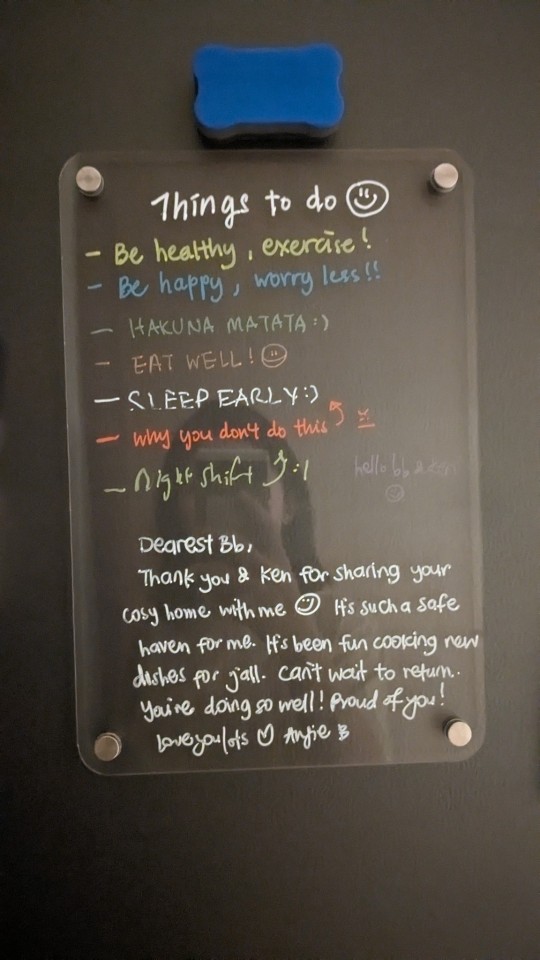 Things to do
- Be healthy, exercise!
- Be happy, worry less!!
- HAKUNA MATATA :)
- EAT WELL!
- SLEEP EARLY :)
- why you don't do this
- Night shift :|
hello bb & ken
Dearest Bb,
Thank you & Ken for sharing your
cosy home with me It's such a safe
haven for me. It's been fun cooking new
dishes for y'all. Can't wait to return.
You're doing so well! Proud of you!
Love you lots ♡ Angie